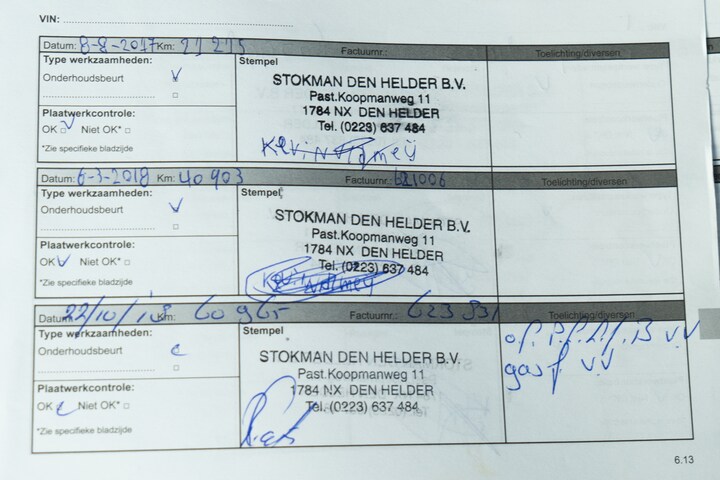 VIN:
Datum: 8-8-2017 Km: 21 275 Factuurnr.: Toelichting/diversen
Type werkzaamheden: Stempel
Onderhoudsbeurt V
STOKMAN DEN HELDER B.V.
Past.Koopmanweg 11
1784 NX DEN HELDER
Tel. (0223) 637 484
Plaatwerkcontrole:
OK V Niet OK*
*Zie specifieke bladzijde
Datum: 6-3-2018 Km: 40 903 Factuurnr.: 621006 Toelichting/diversen
Type werkzaamheden: Stempel
Onderhoudsbeurt V
STOKMAN DEN HELDER B.V.
Past.Koopmanweg 11
1784 NX DEN HELDER
Tel. (0223) 637 484
Plaatwerkcontrole:
OK V Niet OK*
*Zie specifieke bladzijde
Datum: 22/10/18 Km: 60965 Factuurnr.: 623331 Toelichting/diversen
Type werkzaamheden: Stempel
Onderhoudsbeurt
STOKMAN DEN HELDER B.V.
Past.Koopmanweg 11
1784 NX DEN HELDER
Tel. (0223) 637 484
Plaatwerkcontrole:
OK Niet OK*
*Zie specifieke bladzijde
6.13